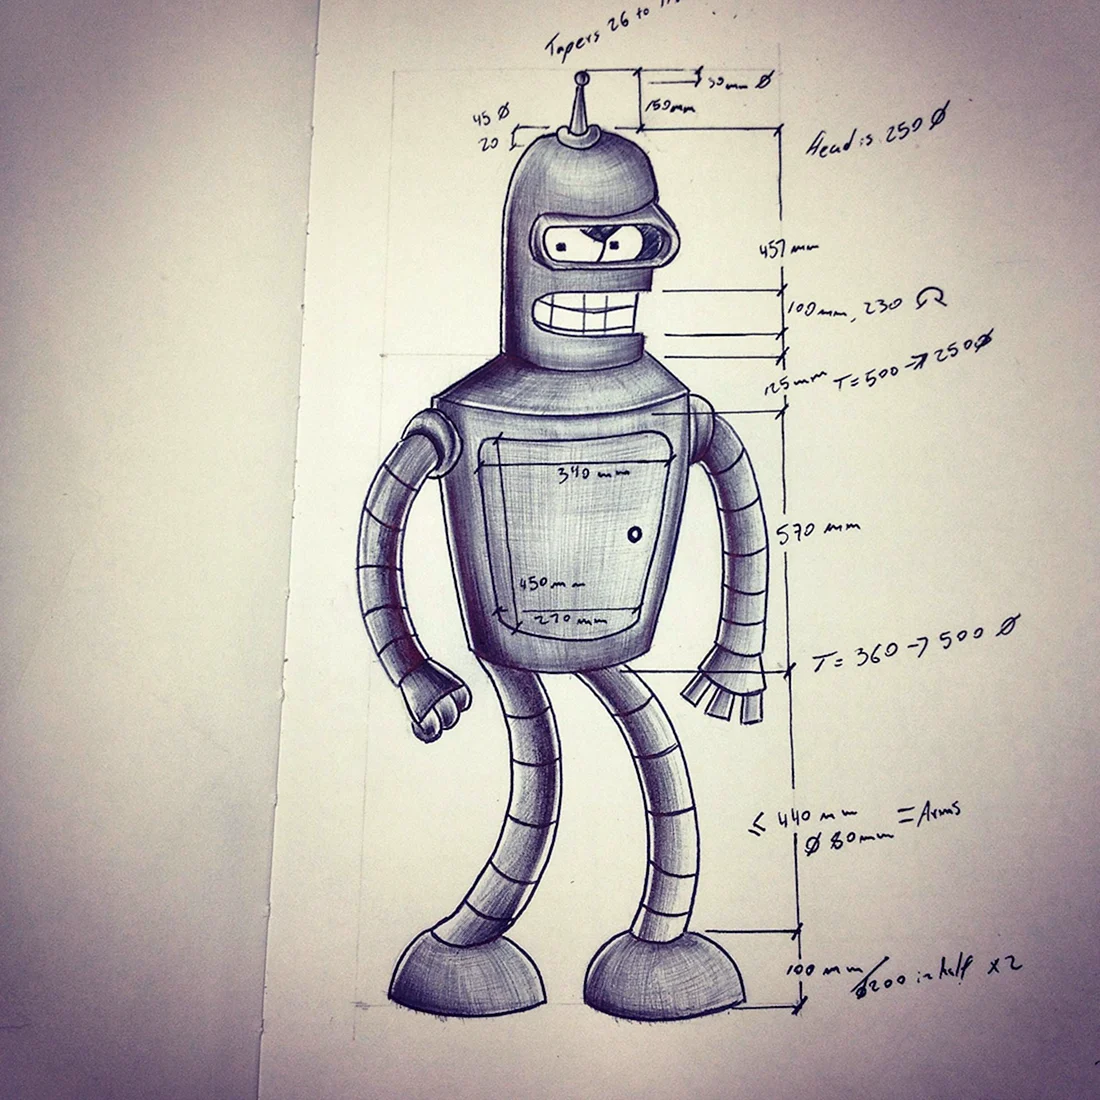 Tapers 26 to
30mm Ø
150mm
45 Ø
20
Head is 250 Ø
457 mm
100mm, 230
125mm T=500->250Ø
340 mm
570 mm
450mm
270 mm
T= 360->500 Ø
≤ 440 mm = Arms
Ø 80mm
100 mm
Ø200 in half x2